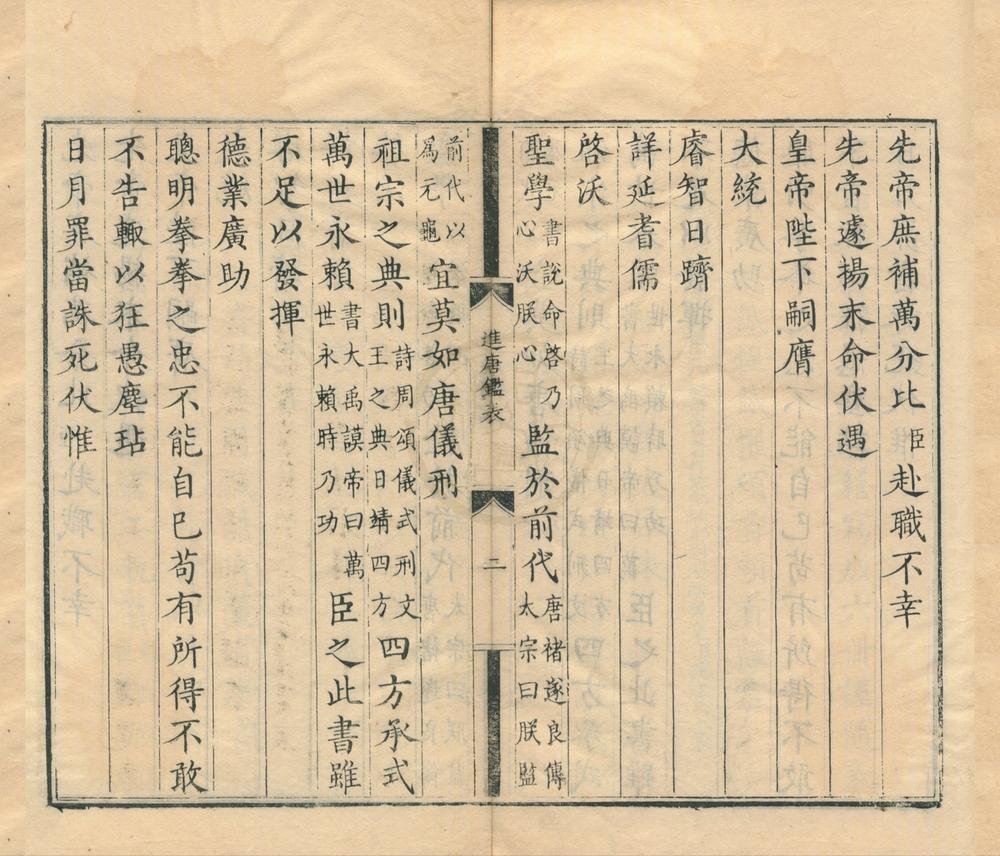 先帝庶補萬分比臣赴職不幸
先帝遽揚末命伏遇
皇帝陛下嗣膺
大統
睿智日躋
詳延耆儒
啓沃
聖學書說命啓乃心沃朕心監於前代唐禇遂良傳太宗曰朕監
進唐鑑表 二
前代以爲元龜宜莫如唐儀刑
祖宗之典則詩周頌儀式刑文王之典日靖四方四方承式
萬世永賴書大禹謨帝曰萬世永賴時乃功臣之此書雖
不足以發揮
德業廣助
聰明拳拳之忠不能自已苟有所得不敢
不告輙以狂愚塵玷
日月罪當誅死伏惟